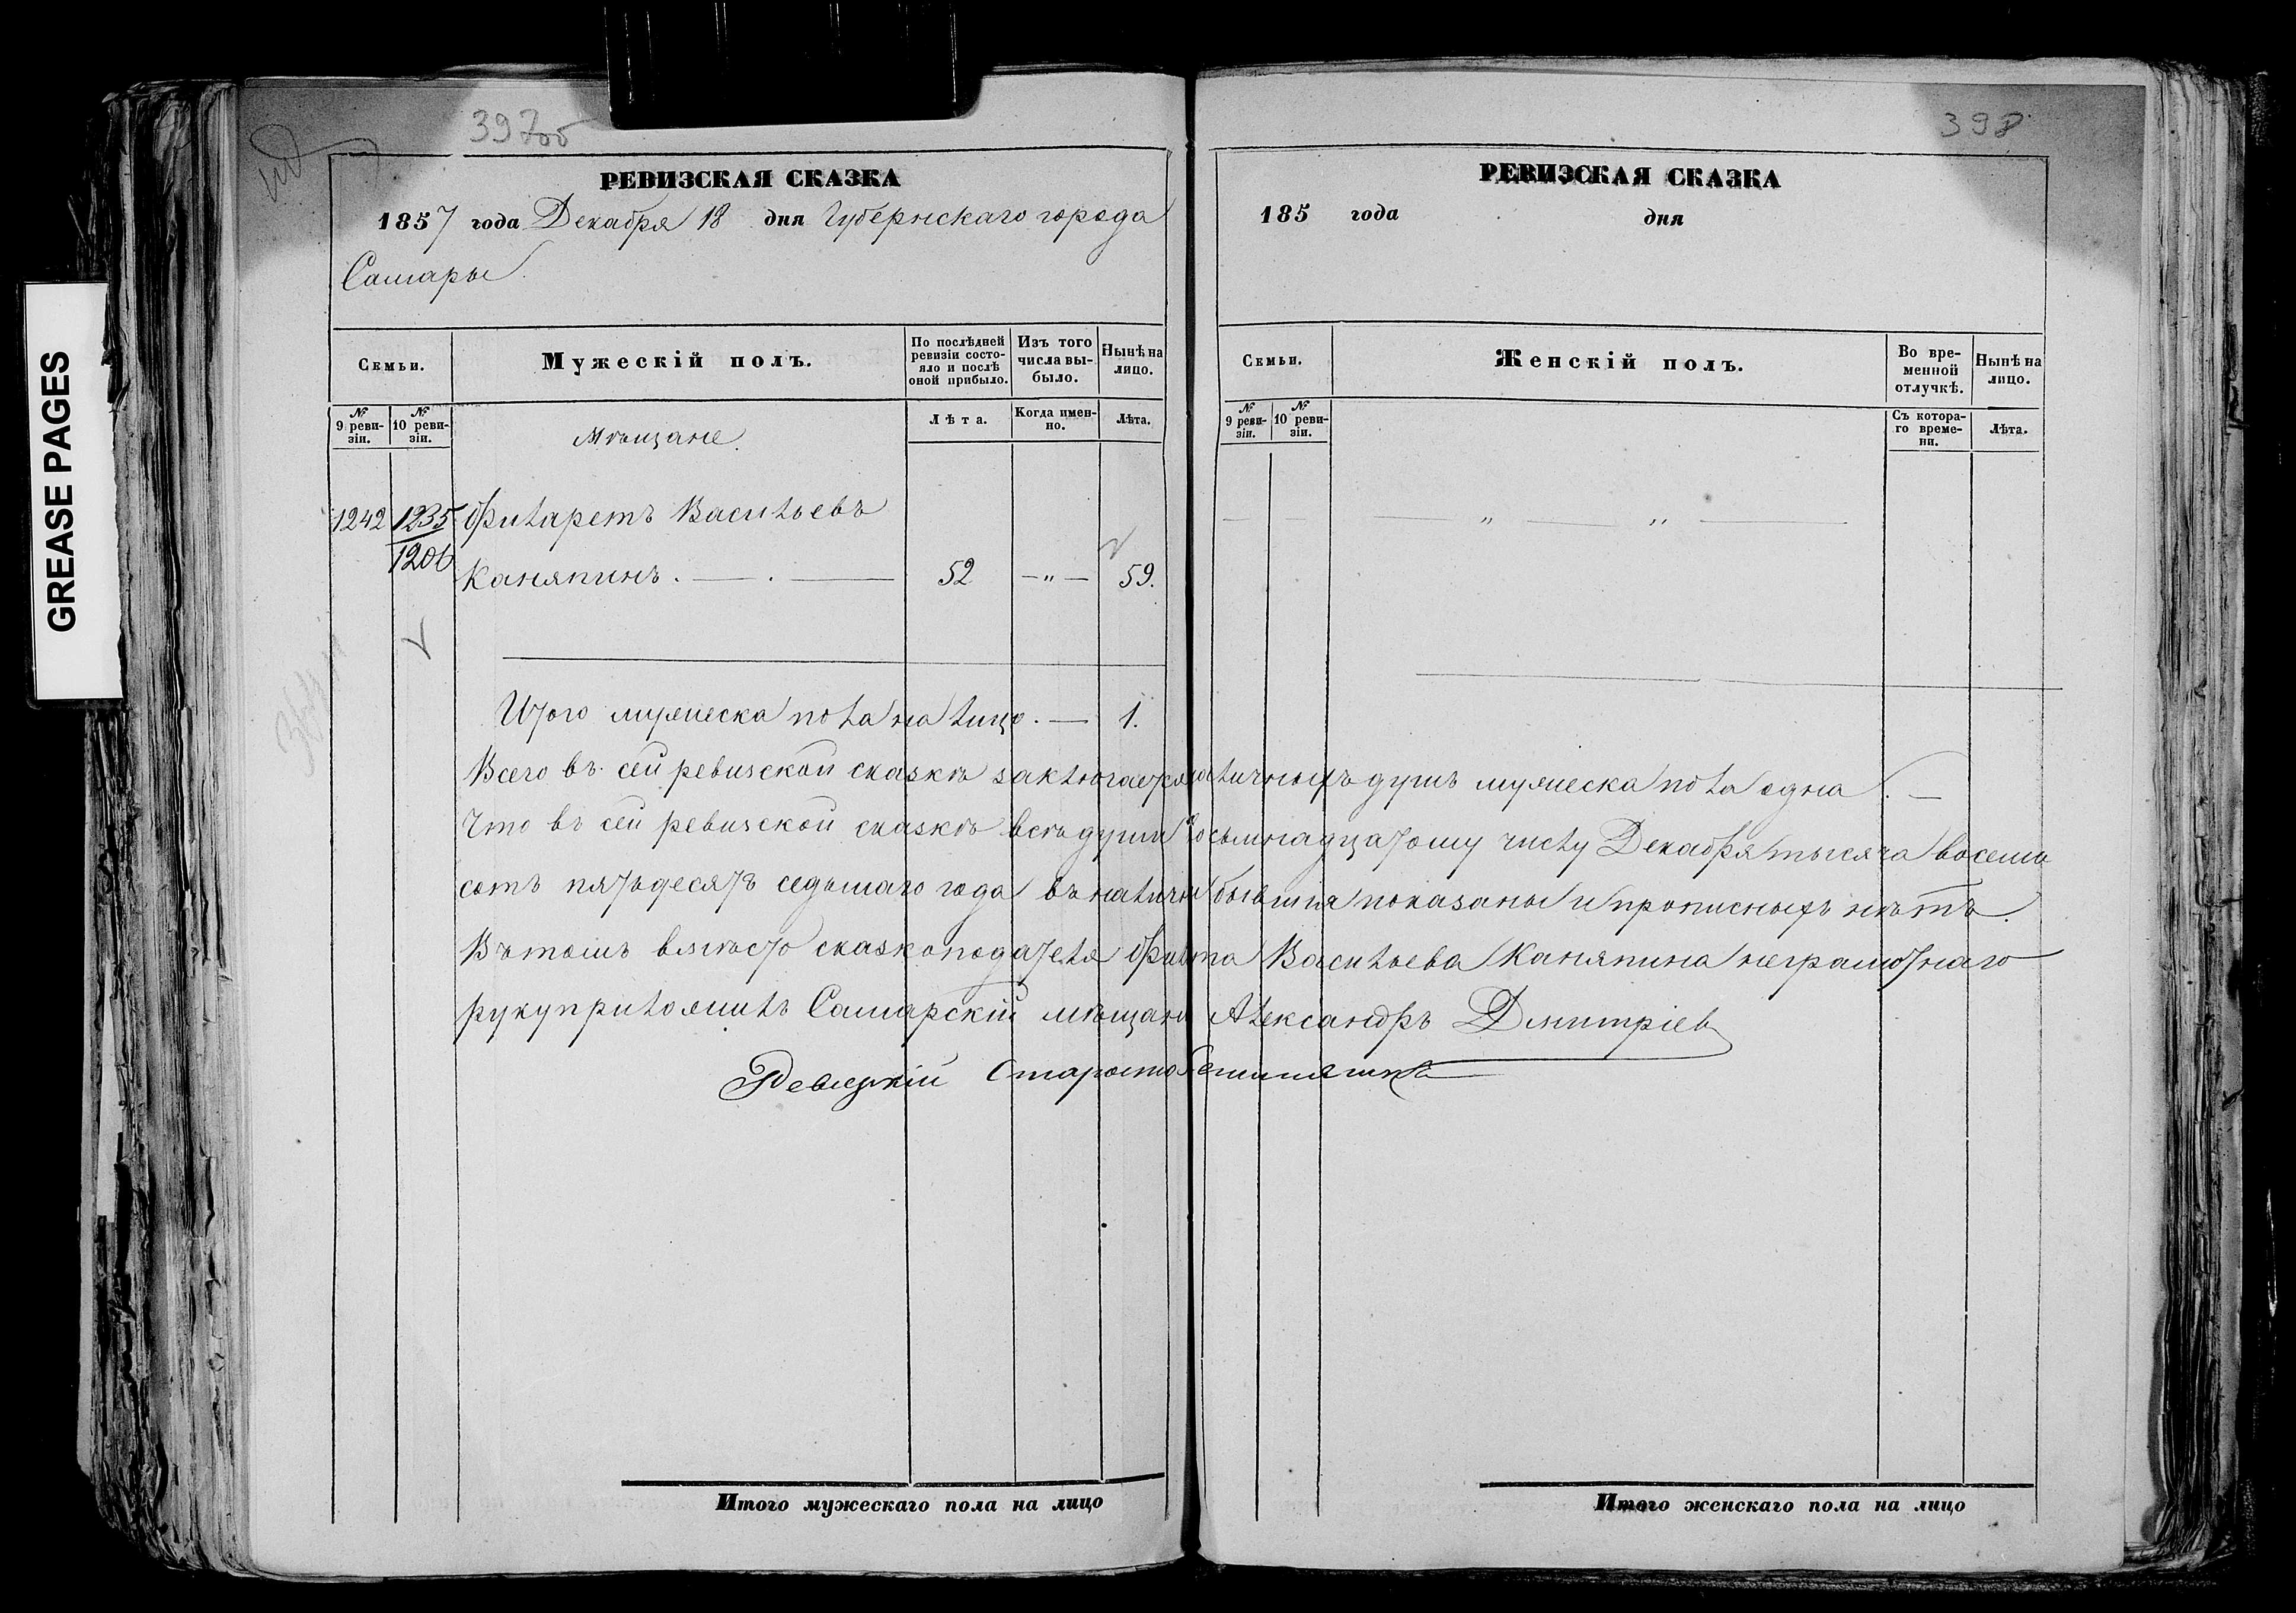 GREASE PAGES
397об
РЕВИЗСКАЯ СКАЗКА
1857 года Декабря 18 дня Губернскаго города
Самары.
Семьи.
Мужескій полъ.
По послѣдней ревизіи состояло и послѣ оной прибыло.
Изъ того числа выбыло.
Нынѣ на лицо.
№ 9 ревизіи.
№ 10 ревизіи.
Мѣщане.
Лѣта.
Когда именно.
Лѣта.
1242 1235 Филаретъ Васильевъ
1206
Каняпинъ. — . — 52 —„— 59.
Итого мужеска пола на лицо. — 1.
398
РЕВИЗСКАЯ СКАЗКА
185 года дня
Семьи.
Женскій полъ.
Во временной отлучкѣ.
Нынѣ на лицо.
№ 9 ревизіи.
№ 10 ревизіи.
Съ котораго времени.
Лѣта.
— — „ — „ —
Всего въ сей ревизской сказкѣ заключается наличныхъ душъ мужеска пола одна. —
Что въ сей ревизской сказкѣ всѣ души восьмнадцатому числу Декабря тысяча восемь
сотъ пятьдесятъ седьмаго года въ наличіи бывшія показаны и прописныхъ нѣтъ.
Въ томъ вмѣсто сказкоподателя Васильева Каняпина неграмотнаго
руку приложилъ Самарскій мѣщани Александръ Дмитріев
Староста
Итого мужескаго пола на лицо
Итого женскаго пола на лицо